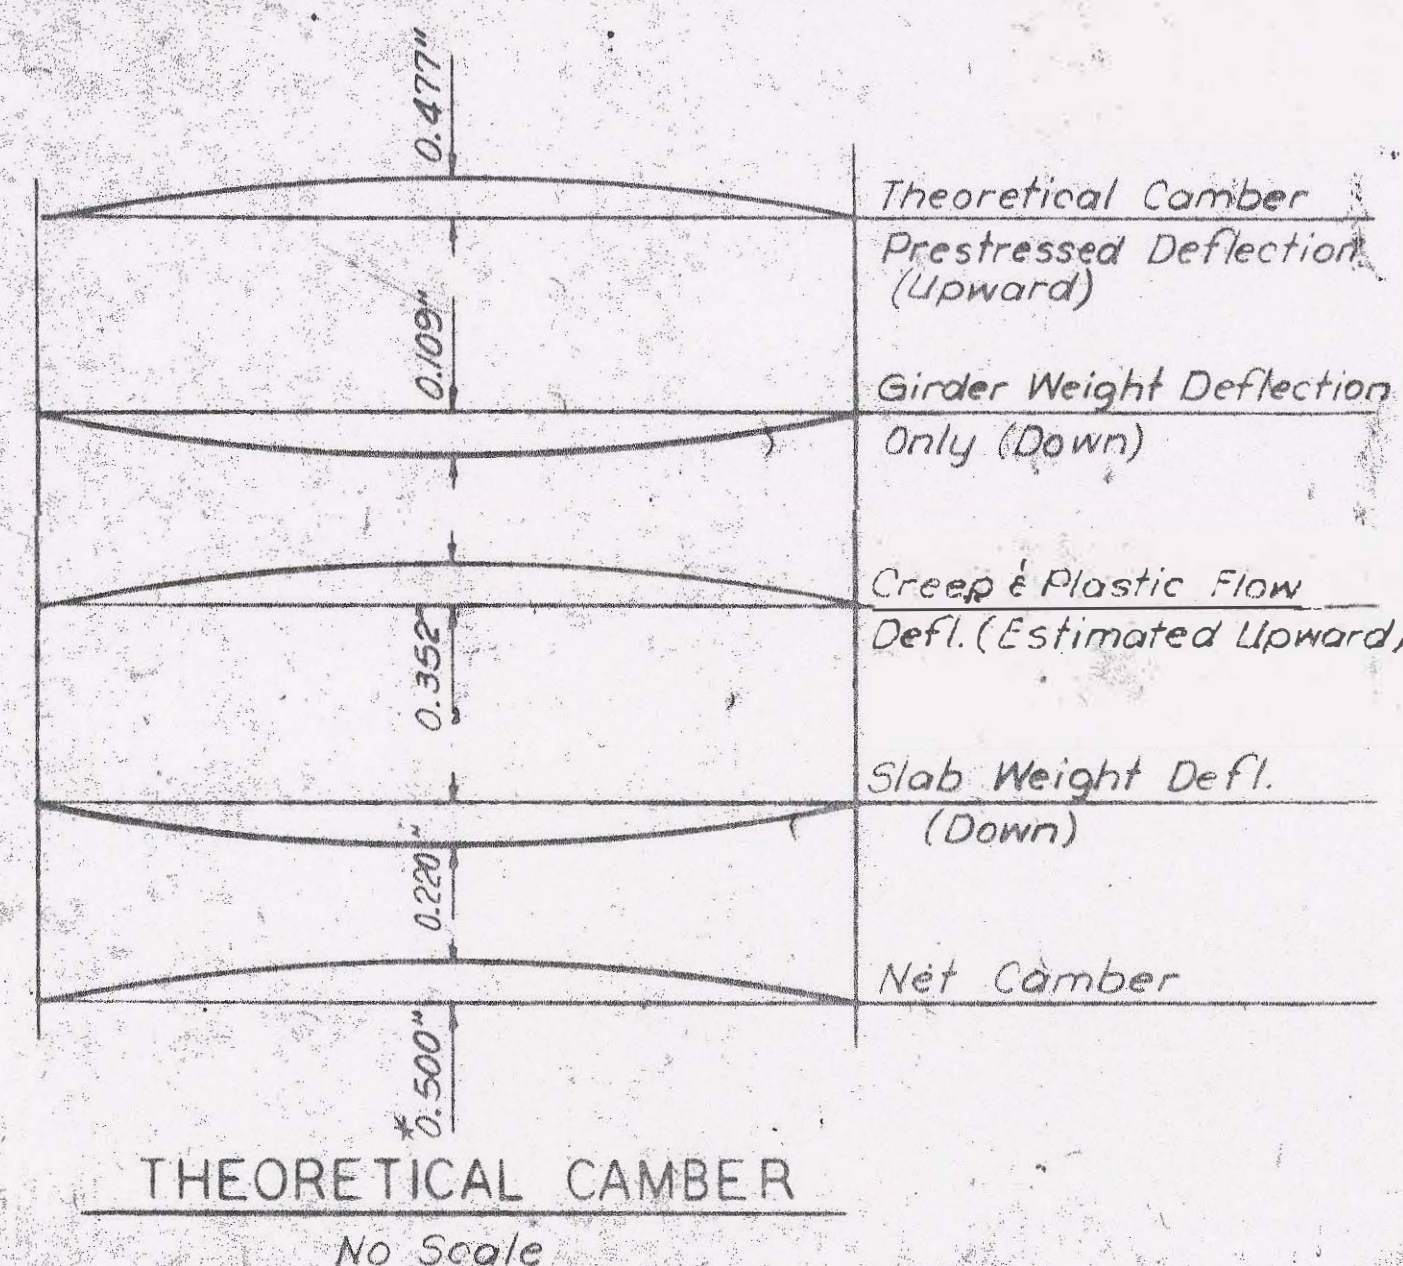 0.477"
Theoretical Camber
Prestressed Deflection
(Upward)
0.109"
Girder Weight Deflection
Only (Down)
Creep & Plastic Flow
Defl. (Estimated Upward)
0.352"
Slab Weight Defl.
(Down)
0.220"
Net Camber
*0.500"
THEORETICAL CAMBER
No Scale